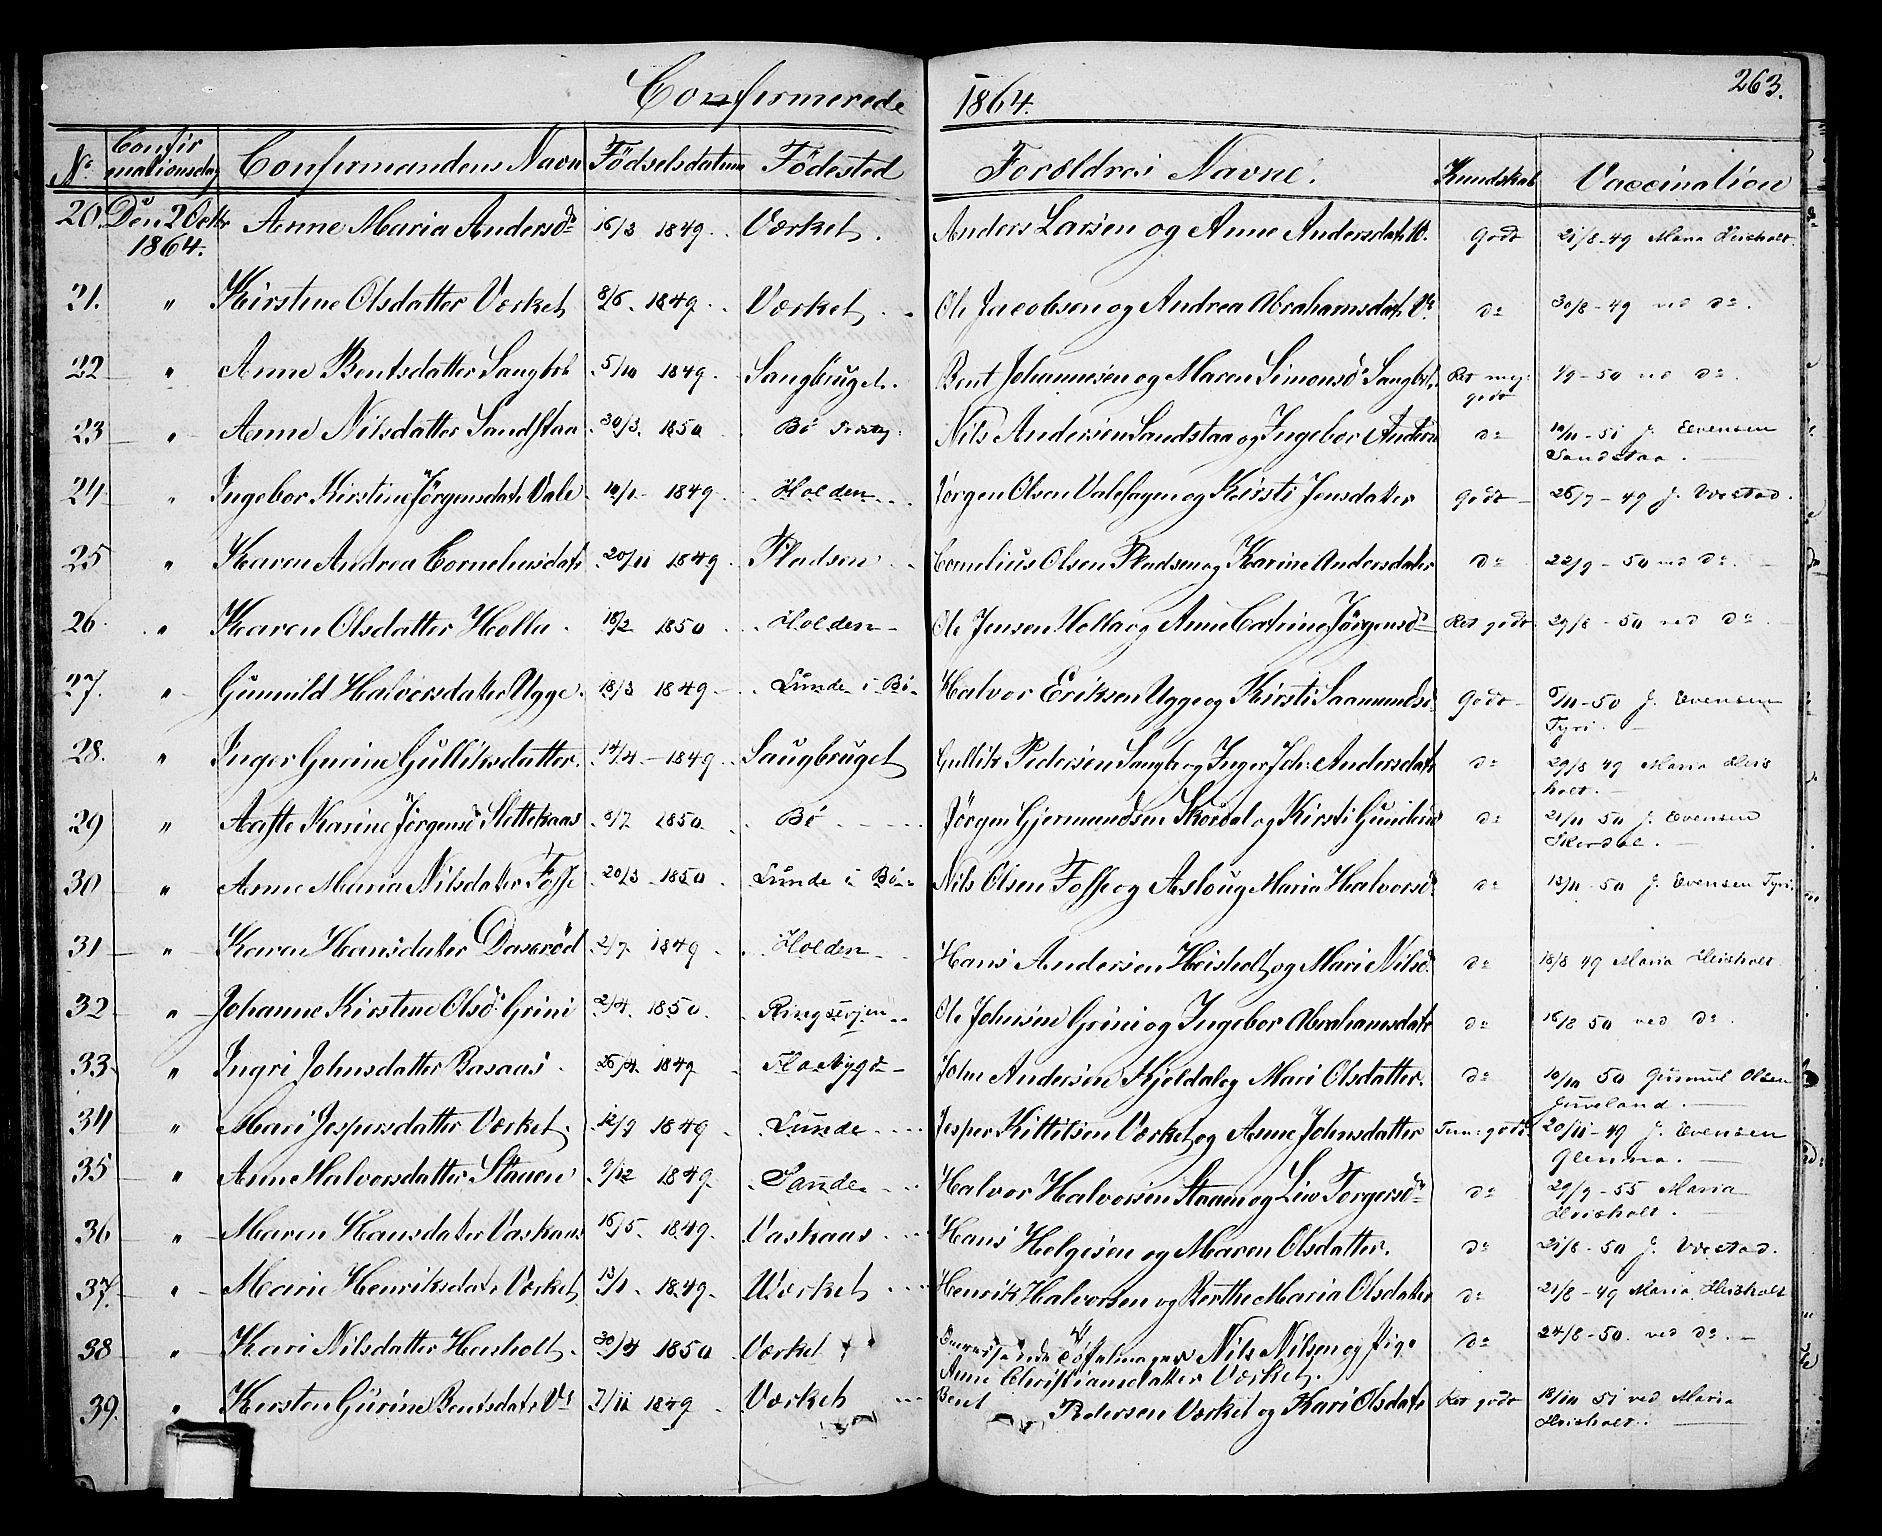 Confirmerede 1864. 263.
No Confirmationsdag Confirmandens Navn Fødselsdatum Fødested Forældres Navne. Kundskab Vaccination
20. Den 2 Octbr 1864. Anne Maria Andersd. 16/3 1849. Værket. Anders Larsen og Anne Andersdatt. V. Godt 21/8-49 Maria Heisholt.
21. " Kirstine Olsdatter Værket 8/6. 1849. Værket. Ole Jacobsen og Andrea Abrahamsdatr V. do 30/8-49 ved do.
22 " Anne Bentsdatter Saugbrt 5/10 1849. Saugbruget. Bent Johannesen og Maren Simonsd. Saugbrt. Ret meg: godt 1/9-50 ved do.
23 " Anne Nilsdatter Sandstaa 30/3. 1850 Bö Nils Andersen Sandstaa og Ingebor Anders do 10/11-51 J. Evensen Sandstaa.
24 " Ingebor Kirstine Jörgensdatr Vale 10/1 1849. Holden Jörgen Olsen Valehagen og Kirsti Jensdatter Godt 26/7-49 J. Vrestad.
25 " Karen Andrea Corneliusdatr 20/11 1849. Pladsen Cornelius Olsen Pladsen og Karine Andersdatter do 22/9-50 ved do.
26. " Karen Olsdatter Holla. 18/2 1850 Holden Ole Jensen Holla og Anne Catrine Jörgensd. Ret godt 29/8-50 ved do.
27. " Gunnild Halvorsdatter Ugge. 18/3 1849 Lunde i Bö Halvor Eriksen Ugge og Kirsti Saamundsd. Godt 6/11-50 J. Evensen Tyri.
28. " Inger Gurine Gulliksdatter. 14/4 1849 Saugbruget Gullik Pedersen Saugb. og Inger Joh: Andersdatr do 29/8 49 Maria Heisholt.
29 " Aaste Karine Jörgensd Slettekaas 8/7 1850. Bö Jörgen Gjermundsen Skordal og Kirsti Gundersd do 21/11 50 J. Evensen Skordal.
30 " Anne Maria Nilsdatter Fosse 20/3 1850. Lunde i Bö Nils Olsen Fosse og Asloug Maria Halvorsd. do 13/11-50 J. Evensen Tyri.
31 " Karen Hansdatter Daserød 2/7 1849 Holden Hans Andersen Heisholt og Mari Nilsd. do 18/8 49 Maria Heisholt.
32 " Johanne Kirstine Olsd. Grini 2/4. 1850. Ole Johnsen Grini og Ingebor Abrahamsdatr do 18/8 50 ved do.
33. " Ingri Johnsdatter Basaas. 25/4. 1849 Flaabygd John Andersen Kjeldal og Mari Olsdatter. do 10/10 50 Gunnul Olsen
34 " Mari Jespersdatter Værket. 12/9 1849 Lunde Jesper Kittilsen Værket og Anne Johnsdatter Tem: godt 20/11-49 J. Evensen Glenna.
35 " Anne Halvorsdatter Staaen 9/12 1849. Sande Halvor Halvorsen Staaen og Liv Torgersd. do 29/9-55 Maria Heisholt.
36 " Maren Hansdatter Vaskaas 16/5. 1849. Vaskaas Hans Helgesen og Maren Olsdatter. do 21/8-50 J. Vrestad.
37. " Marie Henriksdatr Værket 13/1 1849. Værket Henrik Halvorsen og Berthe Maria Olsdatter do 21/8-49 Maria Heisholt
38 " Kari Nilsdatter Heisholt. 30/4 1850 Værket Nils Nilsen og Pige Anne Christiansdatter Værket. do 24/8-50. ved do.
39. " Kirsten Gurine Bentsdatr Vt 7/11 1849 Værket Bent Pedersen Værket og Kari Olsdatr Ret godt 18/10 51 ved Maria Heisholt.